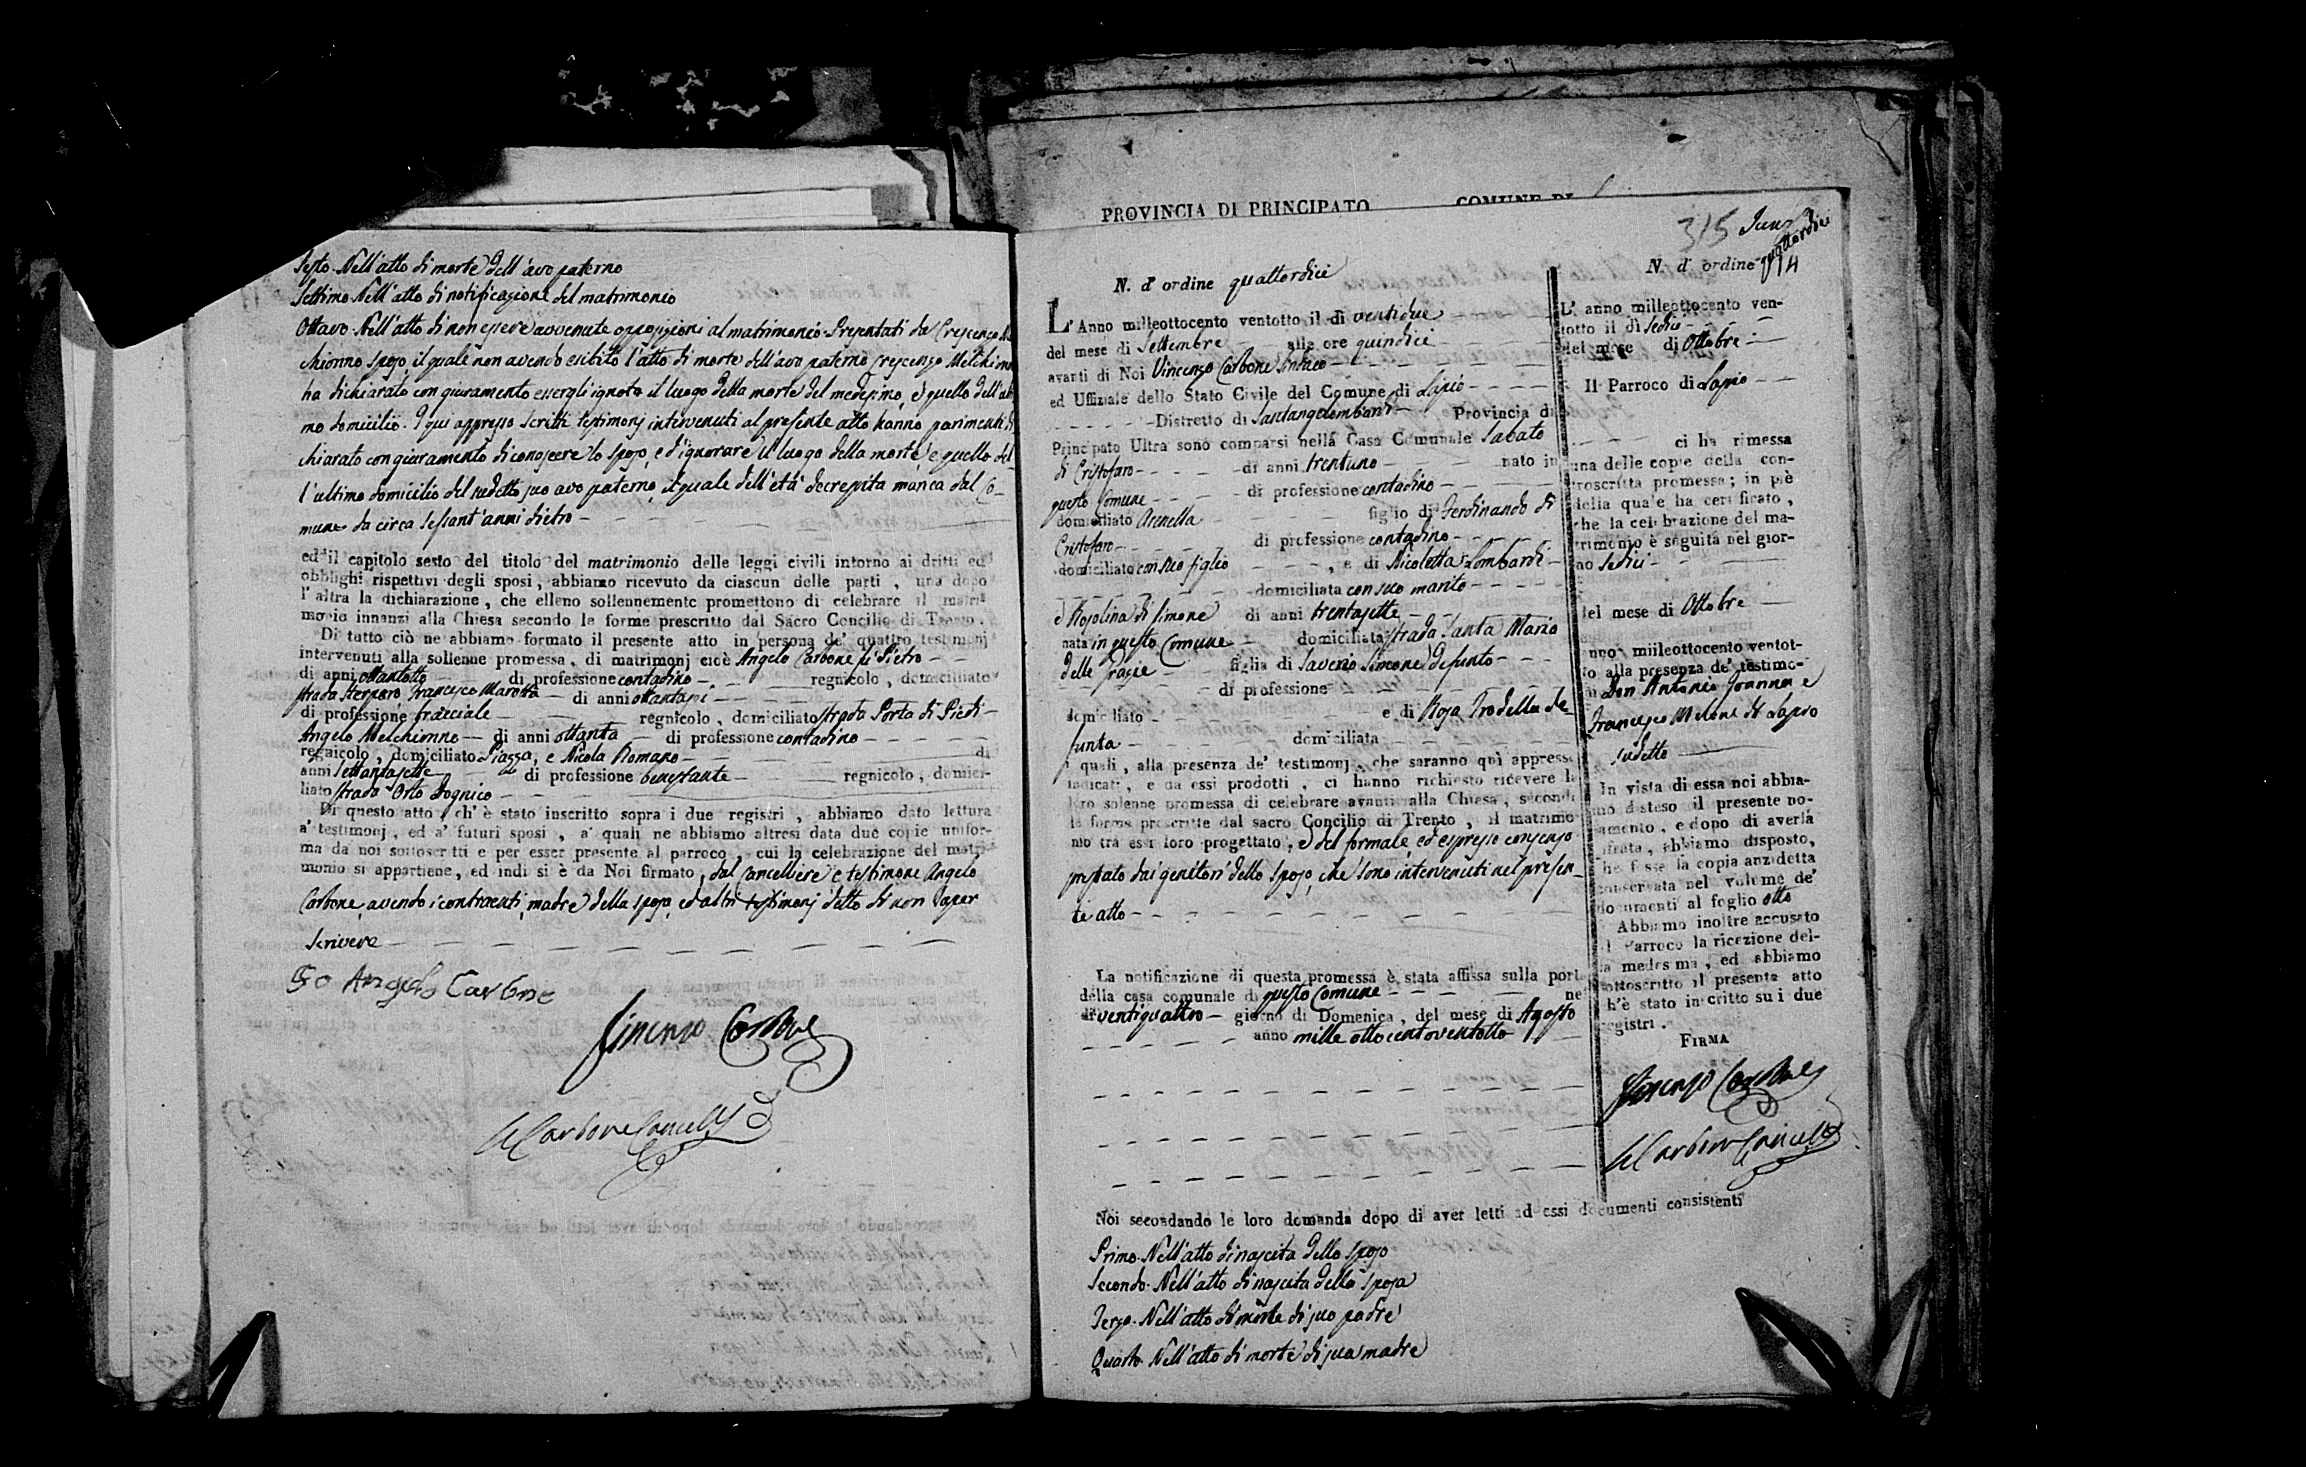 Sesto. Nell'atto di morte dell'avo paterno
Settimo. Nell'atto di notificazione del matrimonio
Ottavo. Nell'atto di non essere avvenute opposizioni al matrimonio. Presentati da Crescenzo
chionno sposo, il quale non avendo esibito l'atto di morte dell'avo paterno Crescenzo Melchionno
ha dichiarato con giuramento essergli ignoto il luogo della morte del medesimo, e quello dell'ulti
mo domicilio. I qui appresso scritti testimonj intervenuti al presente atto hanno parimenti di
chiarato con giuramento di conoscere lo sposo, e d'ignorare il luogo della morte e quello del
l'ultimo domicilio del sudetto suo avo paterno, il quale dell'età decrepita manca dal Co-
mune da circa sessant'anni dietro
ed il capitolo sesto del titolo del matrimonio delle leggi civili intorno ai dritti ed
obblighi rispettivi degli sposi, abbiamo ricevuto da ciascun delle parti, una dopo
l'altra la dichiarazione, che elleno sollennemente promettono di celebrare il matri-
monio innanzi alla Chiesa secondo le forme prescritto dal Sacro Concilio di Trento.
Di tutto ciò ne abbiamo formato il presente atto in persona de' quattro testimonj
intervenuti alla sollenne promessa, di matrimonj cioè Angelo Carbone di Pietro
di anni ottantotto di professione contadino regnicolo, domiciliato
strada Sterparo, Francesco Marotta di anni ottantasei
di professione bracciale regnicolo, domiciliato strada Porta di Piedi
Angelo Melchionno di anni ottanta di professione contadino
regnicolo, domiciliato Piazza, e Nicola Romano di
anni settantasette di professione benestante regnicolo, domici-
liato strada Orto Dognico
Di questo atto, ch'è stato inscritto sopra i due registri, abbiamo dato lettura
a' testimonj, ed a' futuri sposi, a' quali ne abbiamo altresì data due copie unifor-
ma da noi sottoscritti e per esser presente al parroco, cui la celebrazione del matri-
monio si appartiene, ed indi si è da Noi firmato, dal Cancelliere e testimone Angelo
Carbone, avendo i contraenti, madre della sposa, ed altri testimonj detto di non saper
scrivere
Io Angelo Carbone
Vincenzo Carbone
Carbone Cancell
PROVINCIA DI PRINCIPATO COMUNE DI
315
quattordici
N. d' ordine quattordici
L'Anno milleottocento ventotto il dì ventidue
del mese di Settembre alle ore quindici
avanti di Noi Vincenzo Carbone Sindaco
ed Uffiziale dello Stato Civile del Comune di Lapio
Distretto di Santangelombardi Provincia di
Principato Ultra sono comparsi nella Casa Comunale Sabato
di Cristofaro di anni trentuno nato in
questo Comune di professione contadino
domiciliato Arenella figlio di Ferdinando di
Cristofaro di professione contadino
domiciliato con suo figlio, e di Nicoletta Lombardi
domiciliata con suo marito
e Rosolina di Simone di anni trentasette
nata in questo Comune domiciliata strada Santa Maria
delle Grazie figlia di Saverio Simone defunto
di professione
domiciliato e di Rosa Trodella de-
funta domiciliata
i quali, alla presenza de' testimonj, che saranno quì appresso
indicati, e da essi prodotti, ci hanno richiesto ricevere la
loro solenne promessa di celebrare avanti alla Chiesa, secondo
le forme prescritte dal sacro Concilio di Trento, il matrimo
nio tra essi loro progettato, e del formale, ed espresso consenso
prestato dai genitori dello sposo, che sono intervenuti nel presen-
te atto
La notificazione di questa promessa è stata affissa sulla porta
della casa comunale di questo Comune ne
di ventiquattro giorno di Domenica, del mese di Agosto
anno mille ottocentoventotto
N. d' ordine 14
L' anno milleottocento ven-
totto il dì sedici
del mese di Ottobre
Il Parroco di Lapio
ci ha rimessa
una delle copie della con-
troscritta promessa; in piè
della quale ha certificato,
che la celebrazione del ma-
trimonio è seguita nel gior-
no sedici
del mese di Ottobre
anno milleottocento ventot-
to alla presenza de' testimo-
nj Don Antonio Joanna e
Francesco Melone di Lapio
sudetto
In vista di essa noi abbia-
mo disteso il presente no-
tamento, e dopo di averla
cifrata, abbiamo disposto,
che fosse la copia anzidetta
conservata nel volume de'
documenti al foglio otto
Abbiamo inoltre accusato
al Parroco la ricezione del-
la medesima, ed abbiamo
sottoscritto il presente atto
ch'è stato inscritto su i due
registri.
FIRMA
Vincenzo Carbone
Carbone Cancell
Noi secondando le loro domanda dopo di aver letti ad essi documenti consistenti
Primo. Nell'atto di nascita dello sposo
Secondo. Nell'atto di nascita della sposa
Terzo. Nell'atto di morte di suo padre
Quarto. Nell'atto di morte di sua madre